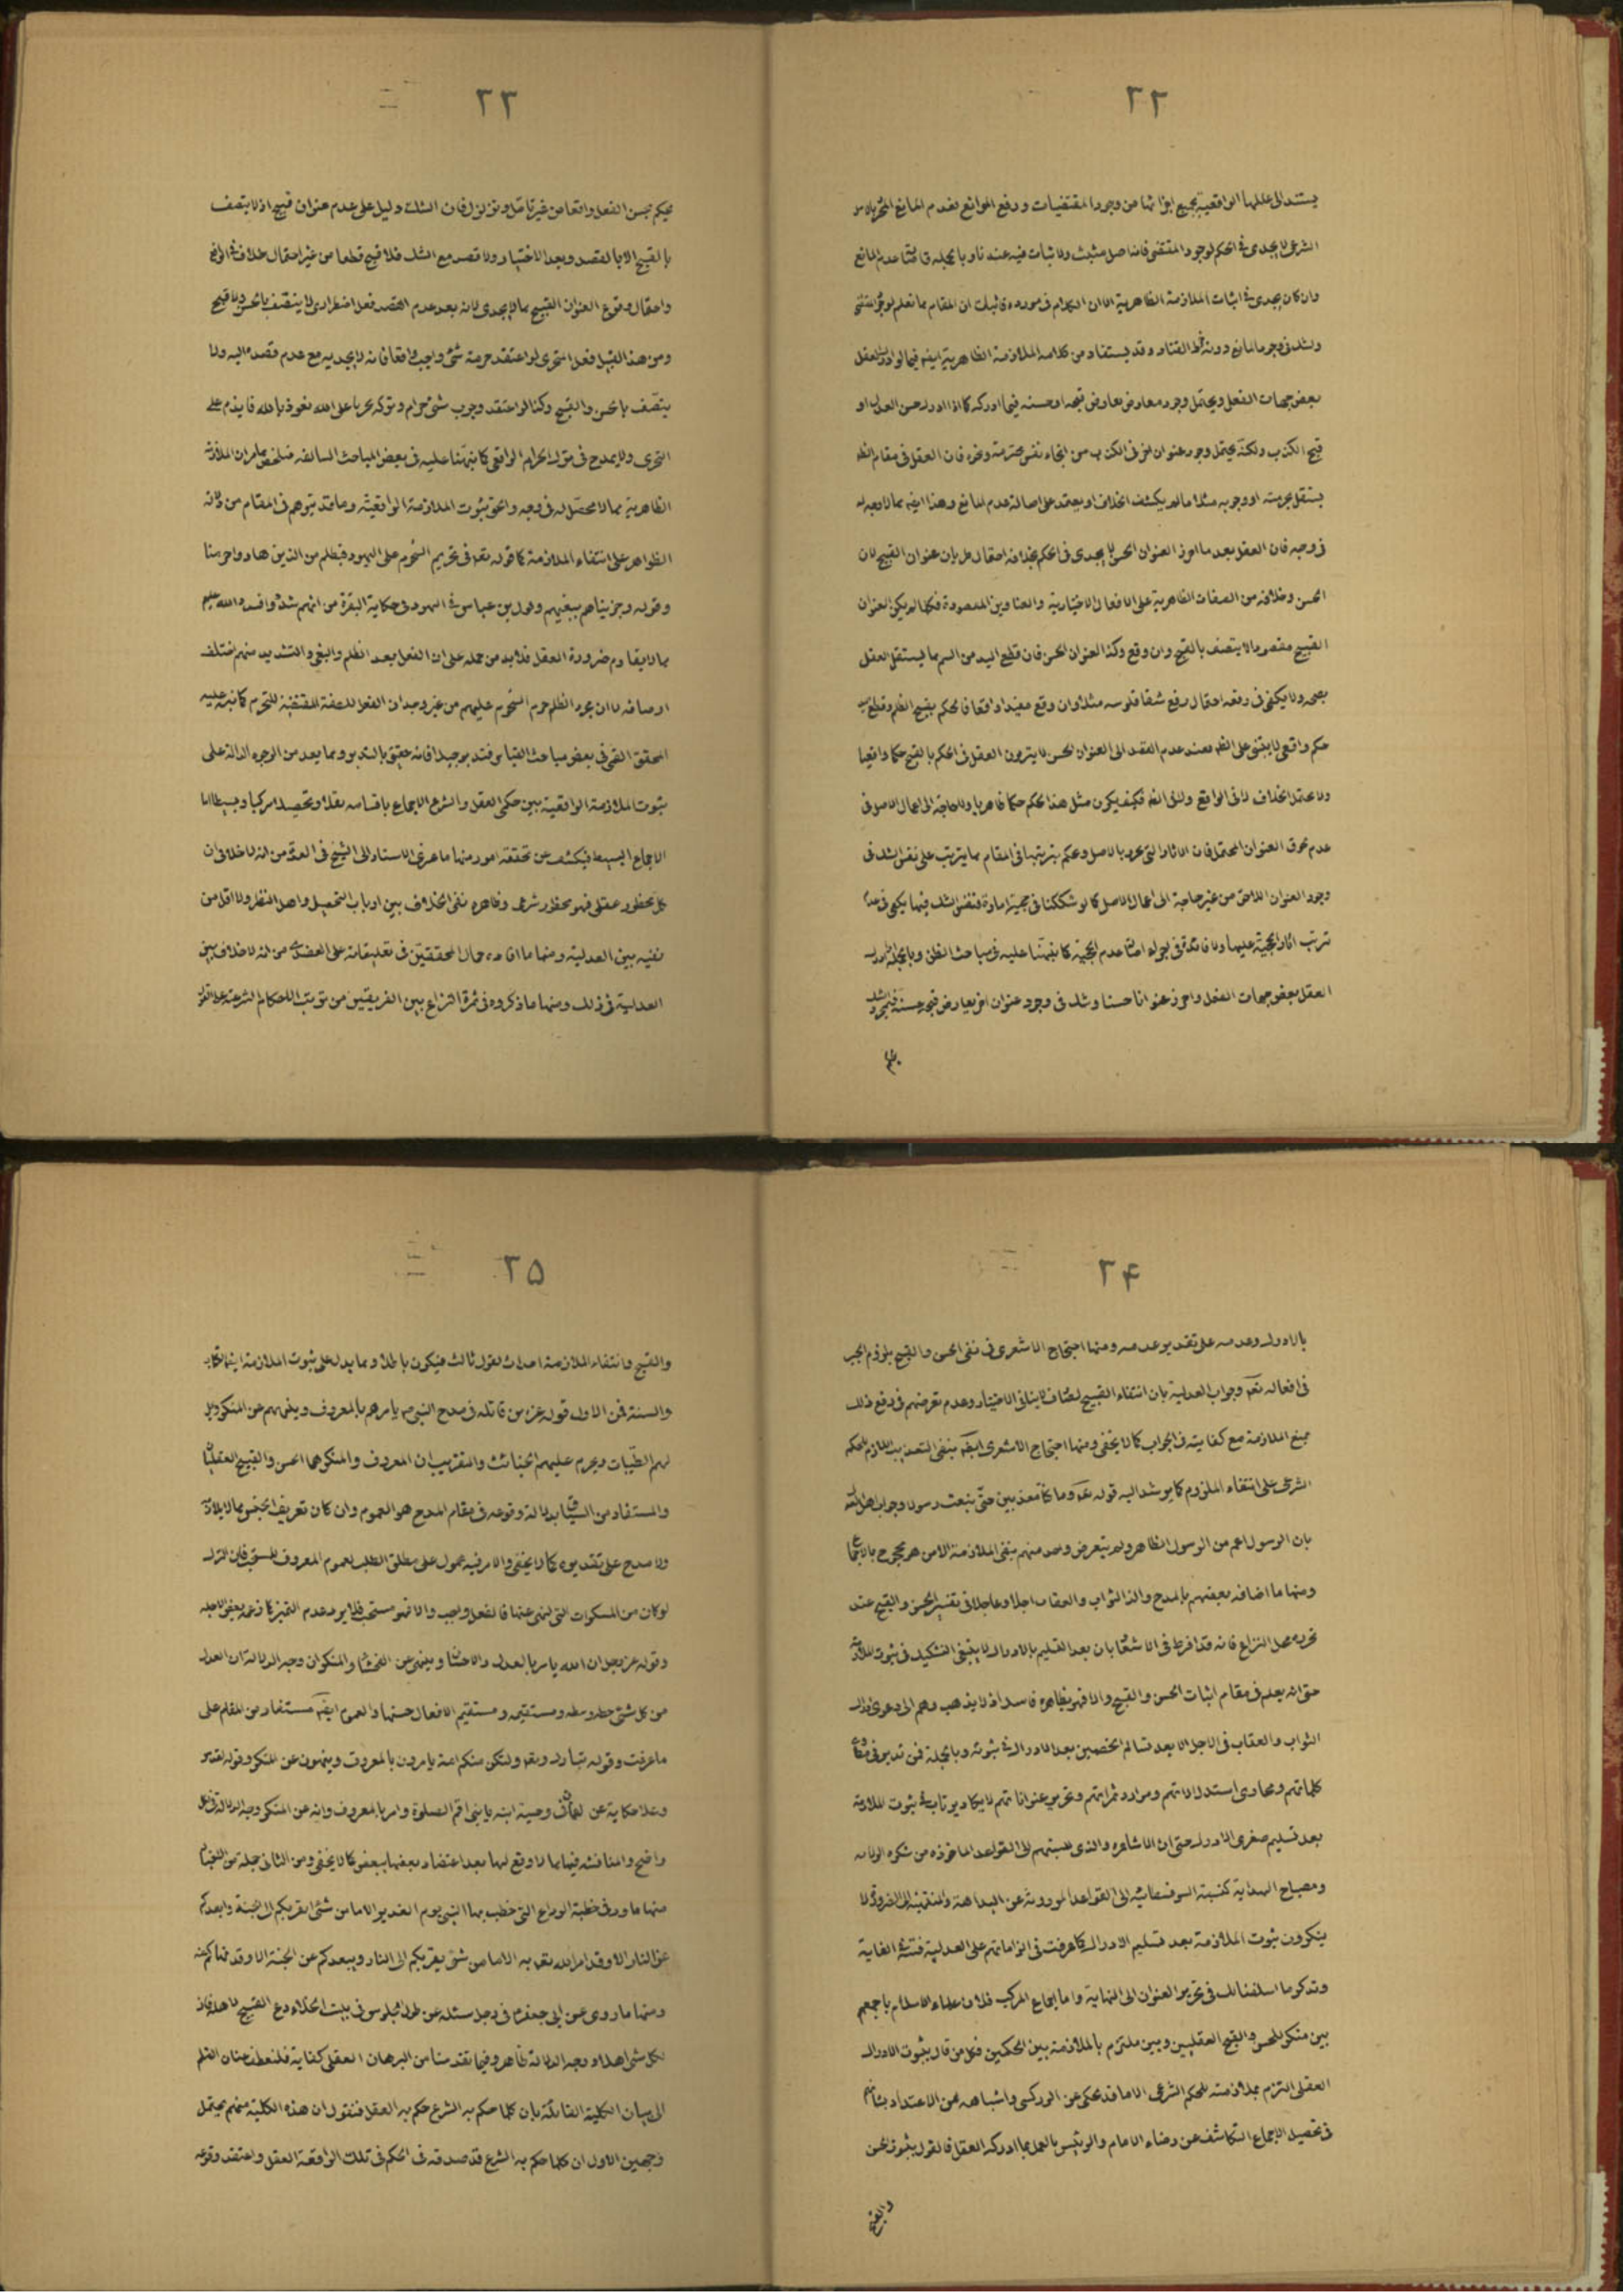 ٢٢
يستند الى عللها الواقعية بجميع اجزائها من وجود المقتضيات و رفع الموانع فعدم المانع
الشرعى لا يجدى فى الحكم لوجود المقتضى فانه اصل مثبت ولا اثبات فيه عندنا و بالجملة
وان كان يجدى فى اثبات الملازمة الظاهرية الا ان الكلام فى مورده
وقد يستفاد من كلامه الملازمة الظاهرية ايضا فيما لو ادرك العقل
بعض جهات الفعل ويحتمل وجود معارض يعارض قبحه او حسنه فيما ادركه كما اذا ادرك حسن العدل او
قبح الكذب ولكنه يحتمل وجود عنوان اخر فى الكذب من انجاء نفس محترمة ونحوه فان العقل فى مقام الظاهر
يستقل بحرمته او وجوبه مثلا ما لم يكشف الخلاف او يعتمد على اصالة عدم المانع وهذا ايضا مما لا وجه له
فان العقل بعد ما احرز العنوان الحسن لا يجدى فى الحكم بخلافه احتمال طريان عنوان القبيح لان
الحسن وخلافه من الصفات الظاهرية على الافعال الاختيارية والعناوين المقصودة فكلما لم يكن العنوان
القبيح مقصودا لا يتصف بالقبح وان وقع وكذا العنوان الحسن فان قطع اليد من السم مما يستقل العقل
حكم واقعى لا يبتنى على العلم فعند عدم القصد الى العنوان الحسن لا يتردد العقل فى الحكم بالقبح حكما واقعيا
ولا يحتمل الخلاف لا فى الواقع ولا فى الظاهر فكيف يكون مثل هذا الحكم حكما ظاهريا ولا حاجة الى اعمال الاصل فى
عدم لحوق العنوان المحتمل فان الاثار التى نحرزها بالاصل ونحكم بترتبها فى المقام مما يترتب على نفس الشك فى
وجود العنوان اللاحق من غير حاجة الى اعمال الاصل كما لو شككنا فى حجية امارة فنفس الشك فيها يكفى فى عدم
ترتب اثار الحجية عليها ولا فائدة فى اجراء اصالة عدم الحجية كما نبهنا عليه فى مباحث الظن وبالجملة
العقل بعض جهات الفعل واحرز عنوانا حسنا وشك فى وجود عنوان اخر يعارض قبحه حسنه
٢٣
يحكم بحسن الفعل واقعا من غير تامل وتزلزل فان الشك دليل على عدم عنوان قبيح اذ لا يتصف
بالقبح الا بالقصد وبعد الاختيار ولا قصد مع الشك فلا قبح قطعا من غير احتمال خلاف فى الواقع
واحتمال وقوع العنوان القبيح مما لا يجدى لانه بعد عدم القصد فعل اضطرارى لا يتصف بالحسن ولا قبح
ومن هذا القبيل فعل المتجرى لو اعتقد حرمة شئ واجب واقعا فانه لا يجديه مع عدم قصده اليه ولا
يتصف بالحسن والقبح وكذا لو اعتقد وجوب شئ حرام وتركه تجريا على الله نعوذ بالله فانه يذم على
التجرى ولا يمدح فى ترك الحرام الواقعى كما نبهنا عليه فى بعض المباحث السالفة فتلخص مما مر ان الملازمة
الظاهرية مما لا محصل له فى وجه والحق ثبوت الملازمة الواقعية وما قد يتوهم فى المقام من دلالة
الظواهر على انتفاء الملازمة كما قوله تعالى فى تحريم الشحوم على اليهود فبظلم من الذين هادوا حرمنا
وقوله وجزيناهم ببغيهم وقول ابن عباس فى اليهود فى حكاية البقرة من انهم شددوا فشدد الله عليهم
مما لا يقاوم ضرورة العقل فلا بد من حمله على ان الفعل بعد الظلم والبغى والتشديد منهم اختلف
اوصافه لا ان مجرد الظلم حرم الشحوم عليهم من غير وجدان الفعل للصفة المقتضية للتحريم كما نبه عليه
المحقق القمى فى بعض مباحث القياس فتدبر جيدا فانه حقيق بالتدبر ومما يعد من الوجوه الدالة على
ثبوت الملازمة الواقعية بين حكمى العقل والشرع الاجماع باقسامه نقلا وتحصيلا مركبا وبسيطا اما
الاجماع البسيط فيكشف عن تحققه امور منها ما عزى الاستاد الى الشيخ فى العدة من انه لا خلاف فى ان
كل محظور عقلى فهو محظور شرعى وظاهره نفى الخلاف بين ارباب التحصيل واهل النظر ولا اقل من
نفيه بين العدلية ومنها ما افاده جمال المحققين فى تعليقاته على العضدى من انه لا خلاف بين
العدلية فى ذلك ومنها ما ذكروه فى ثمرة النزاع بين الفريقين من ترتب الاحكام الشرعية على القول
٢٤
بالادراك وعدمه على تقدير عدمه ومنها احتجاج الاشعرى فى نفى الحسن والقبح بلزوم الجبر
فى افعاله تعالى وجواب العدلية بان انتفاء القبيح لصارف لا ينافى الاختيار وعدم تعرضهم فى دفع ذلك
بمنع الملازمة مع كفايته فى الجواب كما لا يخفى ومنها احتجاج الاشعرى ايضا بنفى التعذيب اللازم للحكم
الشرعى على انتفاء الملزوم كما يرشد اليه قوله تعالى وما كنا معذبين حتى نبعث رسولا وجواب
بان الرسول اعم من الرسول الظاهر ولم يتعرض واحد منهم بنفى الملازمة الا من هو محجوج بالاجماع
ومنها ما اضافه بعضهم بالمدح والذم الثواب والعقاب اجلا وعاجلا فى تفسير الحسن والقبح عند
تحرير محل النزاع فانه قد افرط فى الاشعار بان بعد التسليم بالادراك لا ينبغى التشكيك فى ثبوت الملازمة
حتى انه يعلم فى مقام اثبات الحسن والقبح والا فهو بظاهره فاسد اذ لا يذهب وهم الى دعوى ادراك
الثواب والعقاب فى الاجل الا بعد تسالم الخصمين بعد الادراك فى ثبوته وبالجملة فمن تدبر فى
كلماتهم ومجارى استدلالاتهم وموارد ثمراتهم وتحرير عنواناتهم لا يكاد يرتاب فى ثبوت الملازمة
بعد تسليم صغرى الادراك حتى ان الاشاعرة والذى نسبتهم الى القواعد الماخوذة من
ومصباح الهداية كنسبة السوفسطائية الى القواعد الموروثة عن البداهة والمنتهية الى الضرورة لا
ينكرون ثبوت الملازمة بعد تسليم الادراك كما عرفت فى الزاماتهم على العدلية
وتذكر ما اسلفنا لك فى تحرير العنوان الى النهاية واما اجماع المركب فلان علماء الاسلام باجمعهم
بين منكر للحسن والقبح العقليين وبين ملتزم بالملازمة بين الحكمين فكل من قال بثبوت الادراك
العقلى التزم بملازمته للحكم الشرعى الا ما قد يحكى عن الزركشى واشباهه ممن لا اعتداد بشانهم
فى تحصيل الاجماع الكاشف عن رضاء الامام والرئيس بالعمل بما ادركه العقل فالقول بثبوت الحسن
والقبح
٢٥
والقبح وانتفاء الملازمة احداث لقول ثالث فيكون باطلا ومما يدل على ثبوت الملازمة ايضا الكتاب
والسنة فمن الاول قوله عز من قائله فى مدح النبى ص يامرهم بالمعروف وينهيهم عن المنكر ويحل
لهم الطيبات ويحرم عليهم الخبائث والتقريب ان المعروف والمنكر هما الحسن والقبيح العقليان
والمستفاد من السياق بدلالة وقوعه فى مقام المدح هو العموم وان كان تعريف الجنس مما لا يلازمه
ولا مدح على تقديره كما لا يخفى والامر فيه محمول على مطلق الطلب لعموم المعروف للمستحب فان الترك
لو كان من المنكرات التى نهى عنها فالفعل واجب والا فهو مستحب فلا يرد عدم التميز كما زعمه بعض الاجلة
وقوله عز وجل ان الله يامر بالعدل والاحسان وينهى عن الفحشاء والمنكر ان وجه الدلالة ان العدل
من كل شئ هو وسطه ومستقيمه ومستقيم الافعال حسنها والعموم ايضا مستفاد من المقام على
ما عرفت وقوله تبارك وتعالى ولتكن منكم امة يامرون بالمعروف وينهون عن المنكر وقوله تقدس
وعلا حكاية عن لقمان فى وصية ابنه يا بنى اقم الصلوة وامر بالمعروف وانه عن المنكر وجه الدلالة فى الكل
واضح والمناقشة فيها مما لا وقع لها بعد اعتضاد بعضها ببعض كما لا يخفى ومن الثانى جملة من الاخبار
منها ما ورد فى خطبة الوداع التى خطب بها النبى يوم الغدير الا ما من شئ يقربكم الى الجنة ويبعدكم
عن النار الا وقد امر الله تعالى به الا ما من شئ يقربكم الى النار ويبعدكم عن الجنة الا وقد نهاكم عنه
ومنها ما روى عن ابى جعفر ع فى رجل سئله عن طول الجلوس فى بيت الخلاء دع القبيح لاهله فان
لكل شئ اهلا ووجه الدلالة ظاهر وفيما تقدمنا من البرهان العقلى كفاية فلنعطف عنان القلم
الى بيان الكلية القائلة بان كلما حكم به الشرع حكم به العقل فنقول ان هذه الكلية منهم يحتمل
وجهين الاول ان كلما حكم به الشرع قد صدقه فى الحكم فى تلك الواقعة العقل واعتقد وقوعه